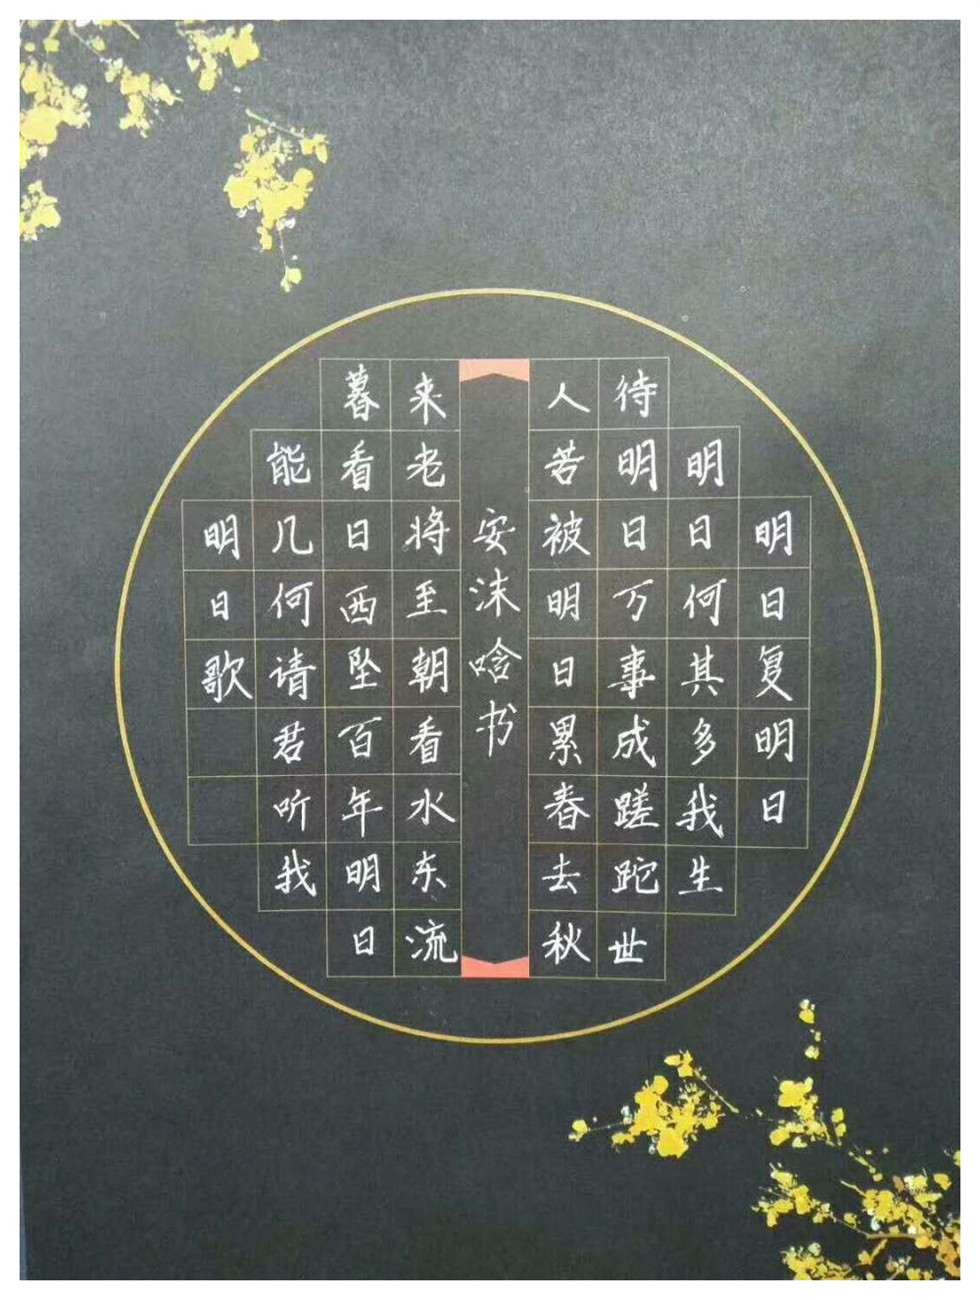 明日复明日
明日何其多我生
待明日万事成蹉跎世
人苦被明日累春去秋
来老将至朝看水东流
暮看日西坠百年明日
能几何请君听我
明日歌
安沫唅书